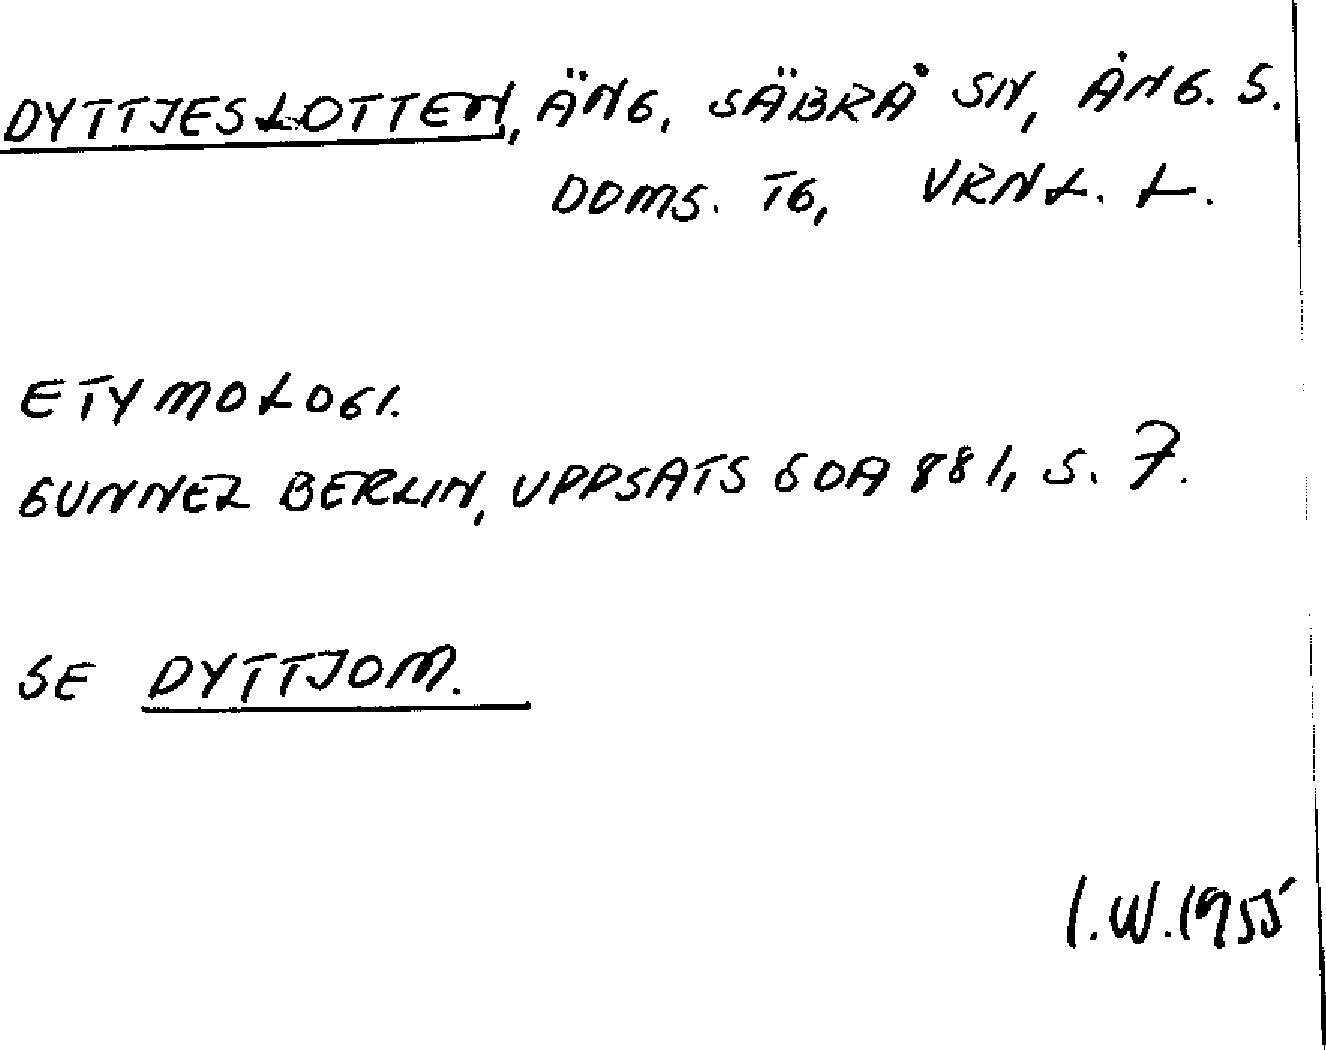 DYTTJESLOTTEN, ÄNG, SÄBRÅ SN, ÅNG. S.
DOMS. TG, VRNL. L.
ETYMOLOGI.
GUNNEL BERLIN, UPPSATS GOA 881, S. 7.
SE DYTTJOM.
I.W.1955